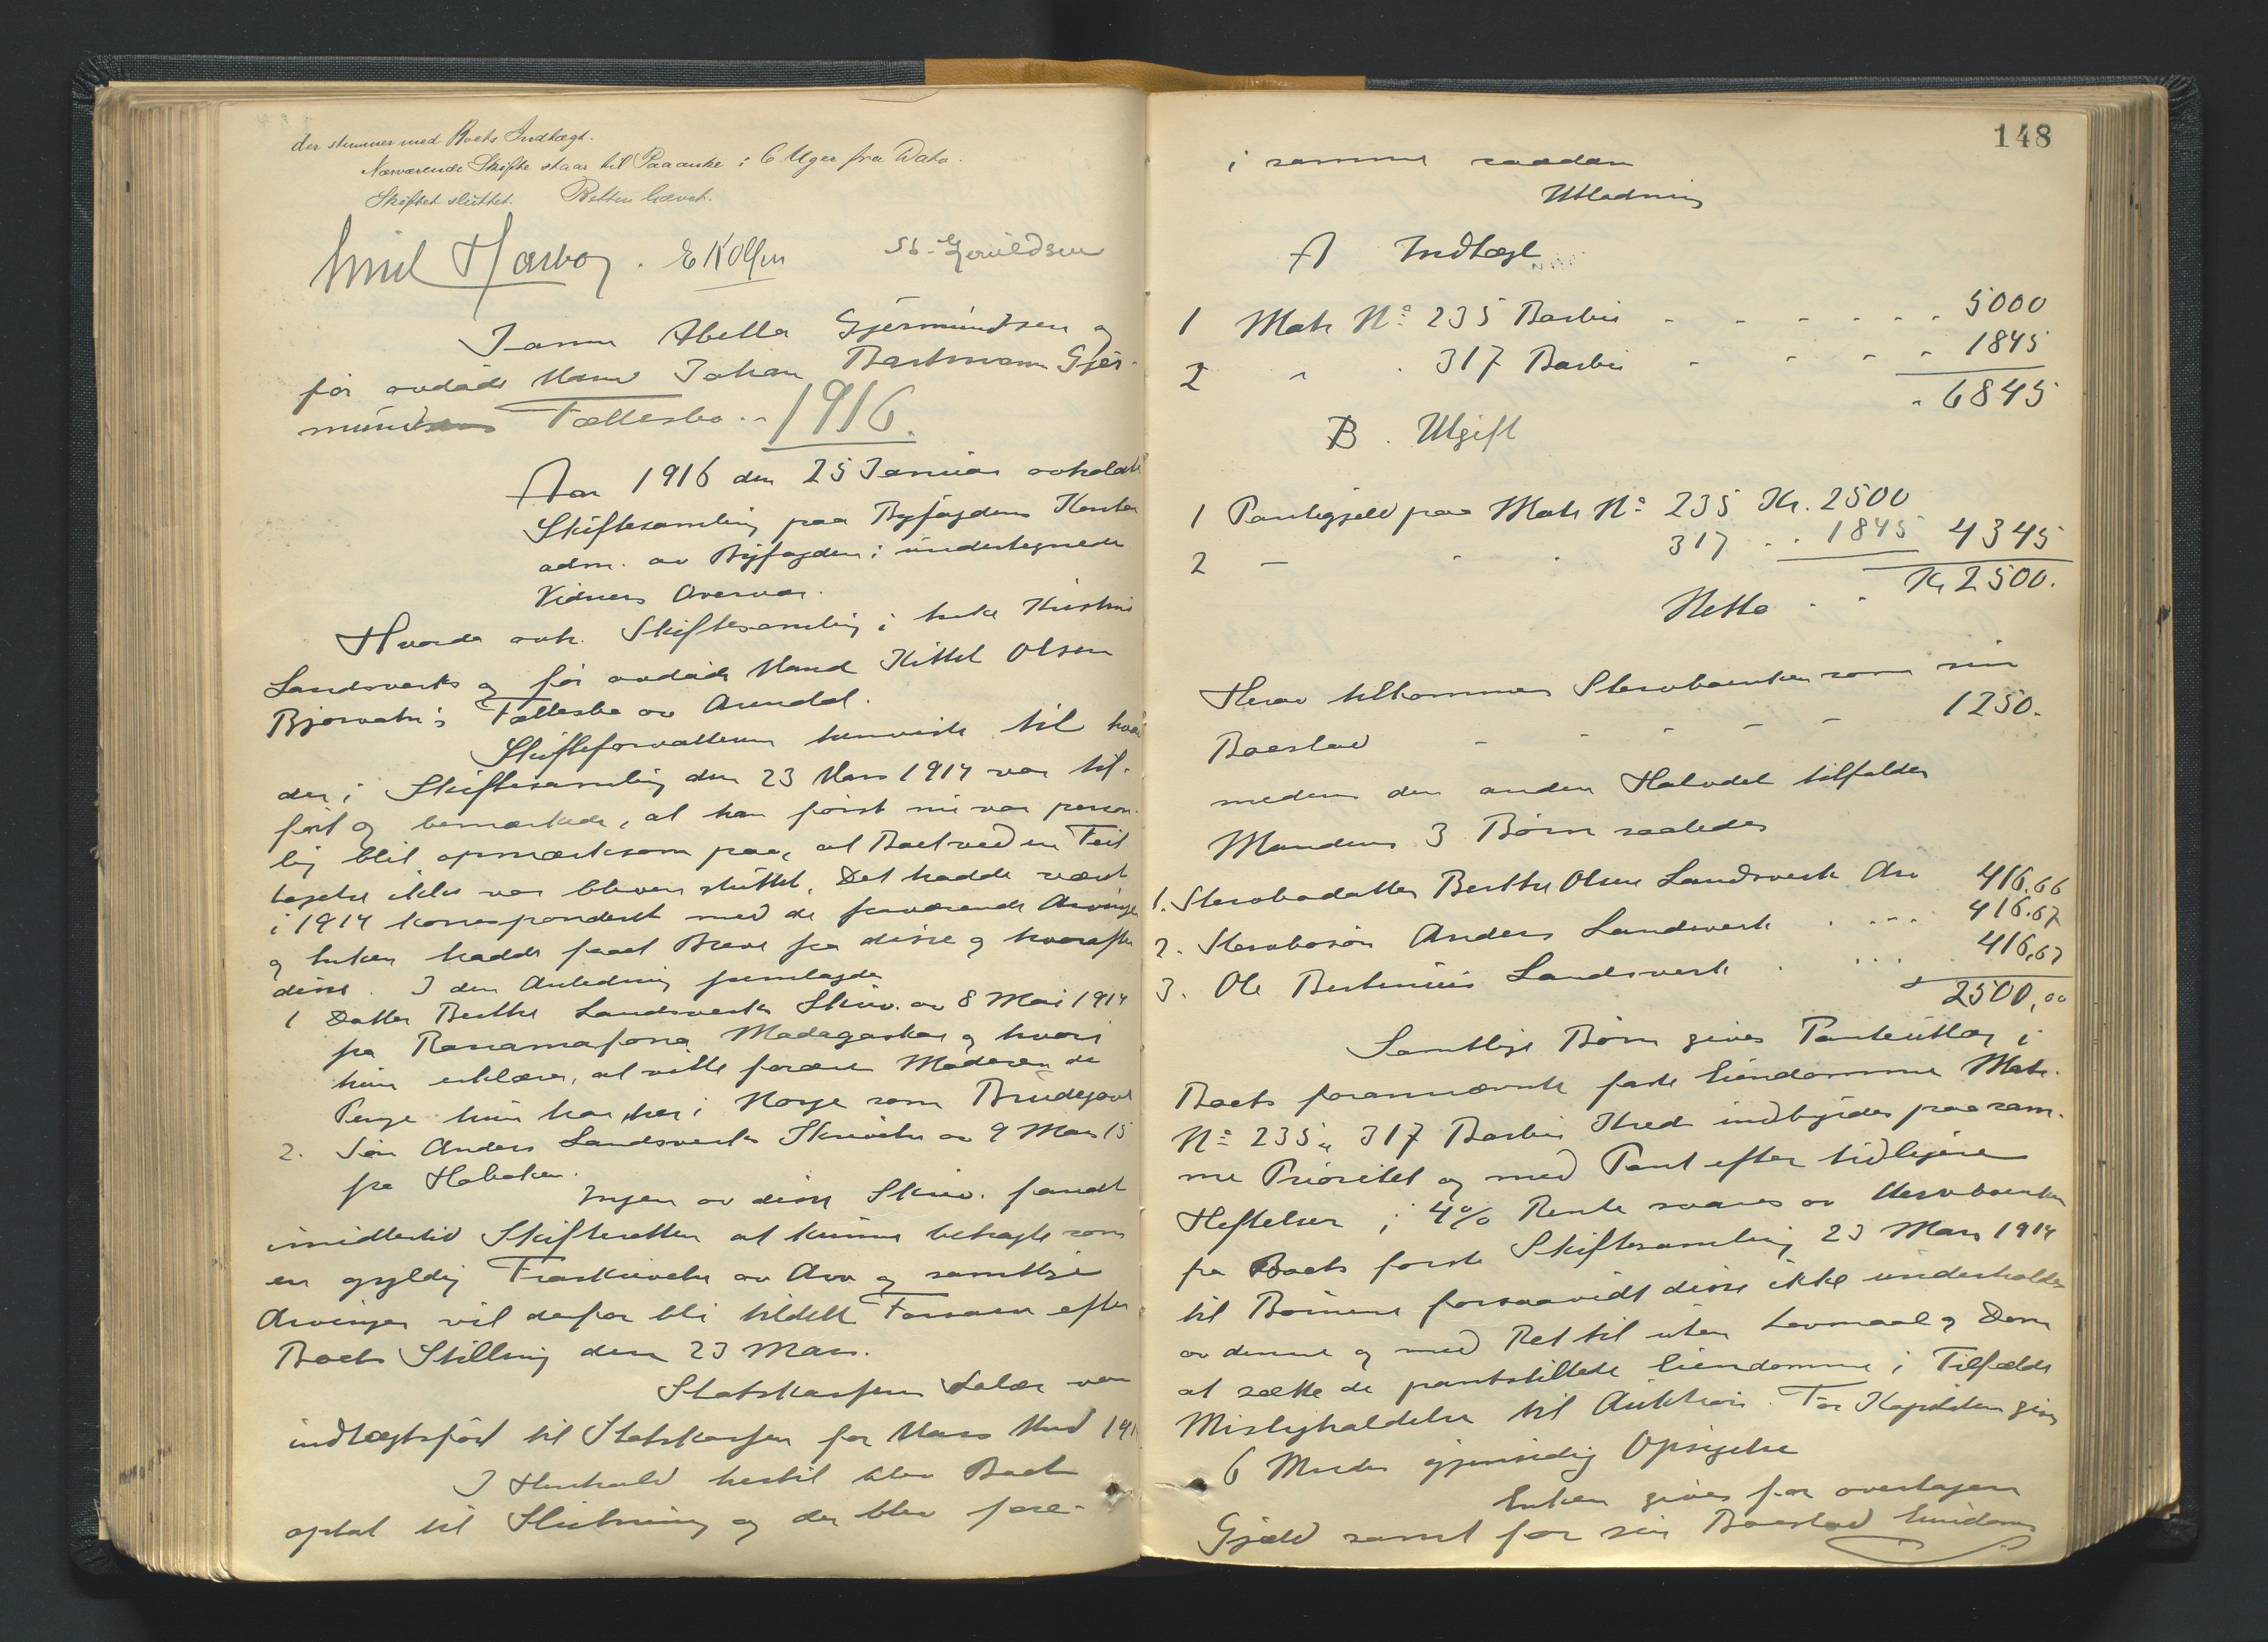 der stemmer med Boets Indtægt.
Nærværende Skifte staar til Paaanke i 6 Uger fra Dato.
Skiftet sluttet. Retten hævet.
Emil Harboe. E Kolfsen St. Gjeruldsen
Janna Abella Gjermundsen og
før avdøde Mand Johan Bertman Gjer-
mundsens Fællesbo.. 1916.
Aar 1916 den 25 Januar avholdt
Skiftesamling paa Byfogdens Kontor
adm. av Byfogden i undertegnede
Vidners Overvær.
Hvorda avh. Skiftesamling i Enke Kristine
Landsverks og før avdøde Mand Kittel Olsen
Bjorvatn's Fællesbo av Arendal.
Skifteforvalteren henviste til hvad
der i Skiftesamling den 23 Mars 1914 var til-
ført og bemærkede, at han først nu var person-
lig blit opmærksom paa, at Boet ved en Feil
tagelse ikke var bleven sluttet. Det hadde været
i 1914 korrespondert med de fraværende Arvinger
og Enken hadde faaet Breve fra disse og hvorefter
disse. I den Anledning fremlagdes
1 Datter Berthe Landsverks Skriv. av 8 Mai 1914
fra Ranamafona Madagaskar og hvori
hun erklærer, at ville forære Moderen de
Penge hun har her i Norge som Brudegave
2. Søn Anders Landsverks Skrivelse av 9 Mars 15
fra Hoboken.
Ingen av disse Skriv. fandt
imidlertid Skifteretten at kunne betragte som
en gyldig Fraskrivelse av Arv og samtlige
Arvinger vil derfor bli tildelt Farsarv efter
Boets Stilling den 23 Mars.
Statskassens Salær var
indtægtsført til Statskassen for Mars Mnd 191
I Henhold hertil blev Boet
optat til Slutning og der blev fore-
148
i samme saadan
Utlodning
A Indtægt
1 Matr No 235 Barbu - - - - - - 5000
2 " . 317 Barbu - - - - 1845
. 6845
B. Utgift
1 Pantegjeld paa Matr No 235 Kr. 2500
2 - - . 317 .. 1845 4345
Netto . . Kr 2500.
Herav tilkommer Stervboenken som sin
Boeslod - - - - 1250.
medens den anden Halvdel tilfalder
Mandens 3 Børn saaledes
1. Stervbodatter Berthe Olene Landsverk Arv 416.66
2. Stervbosøn Anders Landsverk . ... 416.67
3. Ole Bertinius Landsverk . ... 416,67
2500,00
Samtlige Børn gives Panteutlæg i
Boets forannævnte faste Eiendomme Matr.
No 235 & 317 Barbu Kreds indbyrdes paa sam-
me Prioritet og med Pant efter tidligere
Heftelser ; 4% Rente svares av Stervboenken
fra Boets første Skiftesamling 23 Mars 1914
til Børnene forsaavidt disse ikke underholdes
av denne og med Ret til uten Lovmaal og Dom
at sætte de pantstillede Eiendomme i Tilfælde
Misligholdelse til Auktion. For Kapitalen gives
6 Mndrs gjensidig Opsigelse
Enken gives for overtagen
Gjæld samt for sin Boeslod Eiendoms